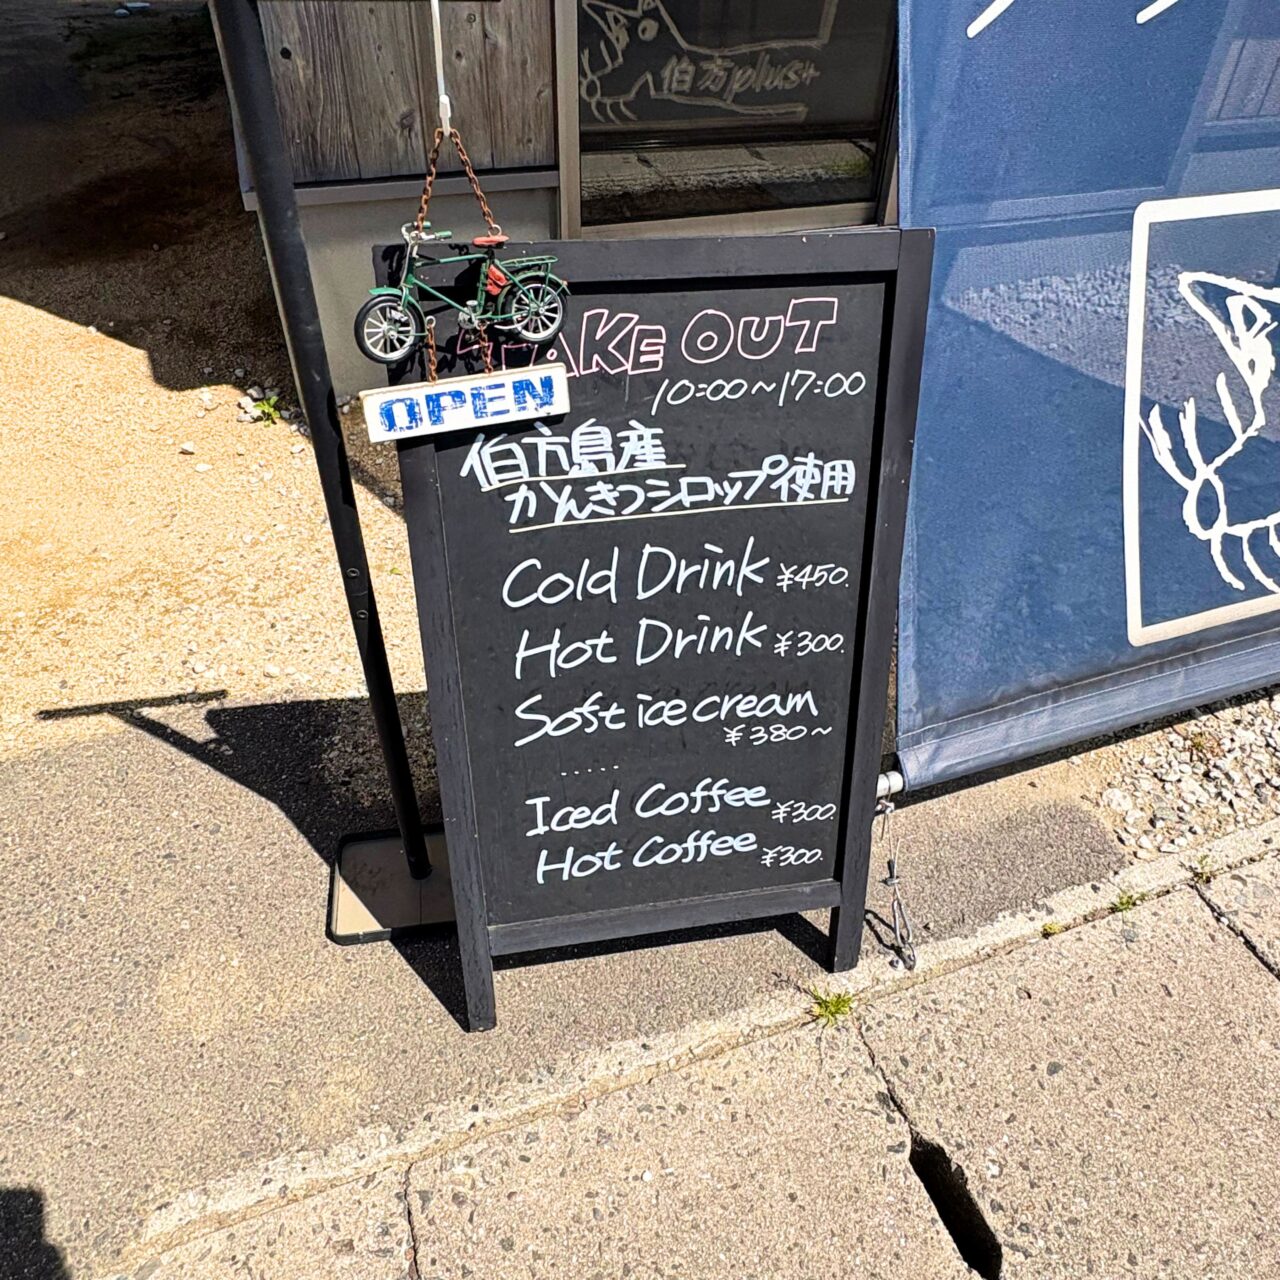 伯方plus+
TAKE OUT
OPEN
10:00~17:00
伯方島産
かんきつシロップ使用
Cold Drink ¥450.
Hot Drink ¥300.
Soft ice cream
¥380~
.....
Iced Coffee ¥300.
Hot Coffee ¥300.